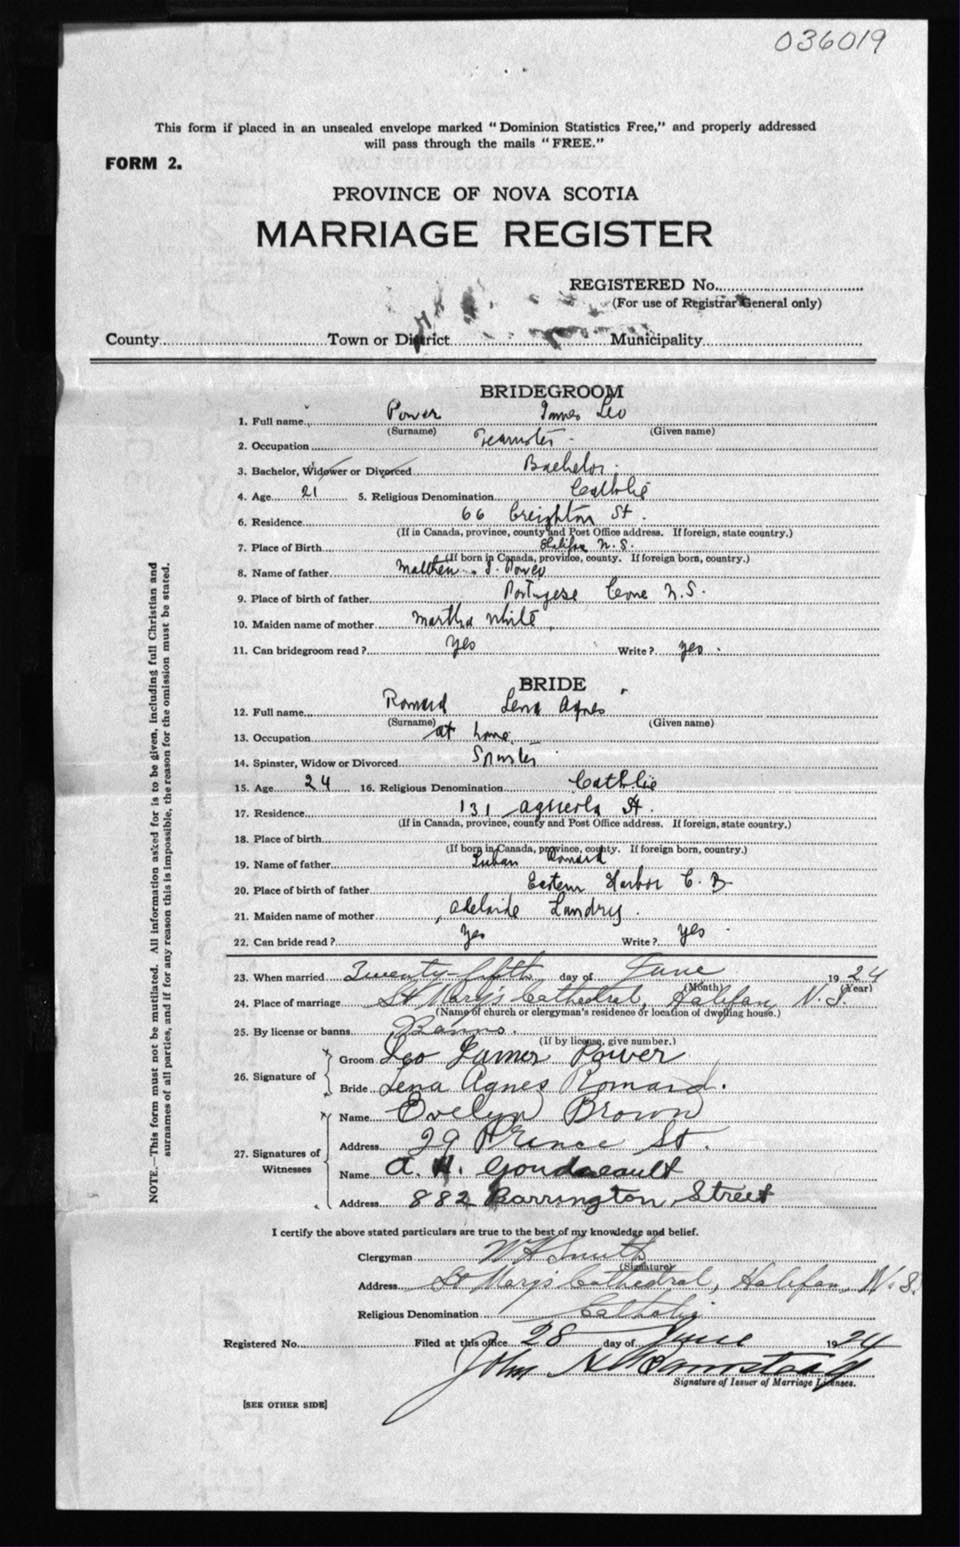 036019
This form if placed in an unsealed envelope marked "Dominion Statistics Free," and properly addressed
will pass through the mails "FREE."
FORM 2.
PROVINCE OF NOVA SCOTIA
MARRIAGE REGISTER
REGISTERED No.
(For use of Registrar General only)
County Town or District Municipality
BRIDEGROOM
1. Full name Power James Leo
(Surname) (Given name)
2. Occupation Teamster
3. Bachelor, Widower or Divorced Bachelor
4. Age 21 5. Religious Denomination Catholic
6. Residence 66 Creighton St.
(If in Canada, province, county and Post Office address. If foreign, state country.)
7. Place of Birth Halifax N.S.
(If born in Canada, province, county. If foreign born, country.)
8. Name of father Matthew J. Power
9. Place of birth of father Portugese Cove N.S.
10. Maiden name of mother Martha White
11. Can bridegroom read? Yes Write? yes
BRIDE
12. Full name Romard Lena Agnes
(Surname) (Given name)
13. Occupation at home
14. Spinster, Widow or Divorced Spinster
15. Age 24 16. Religious Denomination Catholic
17. Residence 131 Agricola St.
(If in Canada, province, county and Post Office address. If foreign, state country.)
18. Place of birth
(If born in Canada, province, county. If foreign born, country.)
19. Name of father Romard
20. Place of birth of father Eastern Harbor C.B.
21. Maiden name of mother Adelaide Landry
22. Can bride read? Yes Write? yes
23. When married Twenty-fifth day of June 1924
(Month) (Year)
24. Place of marriage St. Mary's Cathedral, Halifax, N.S.
(Name of church or clergyman's residence or location of dwelling house.)
25. By license or banns Banns.
(If by license, give number.)
26. Signature of
Groom Leo James Power
Bride Lena Agnes Romard.
27. Signatures of Witnesses
Name Evelyn Brown
Address 29 Prince St.
Name A. H. Goudreault
Address 882 Barrington Street
I certify the above stated particulars are true to the best of my knowledge and belief.
Clergyman W H Smith
(Signature)
Address St Mary's Cathedral, Halifax, N.S.
Religious Denomination Catholic
Registered No. Filed at this office 28 day of June 1924
John
Signature of Issuer of Marriage Licenses.
[SEE OTHER SIDE]
NOTE.—This form must not be mutilated. All information asked for is to be given, including full Christian and
surnames of all parties, and if for any reason this is impossible, the reason for the omission must be stated.